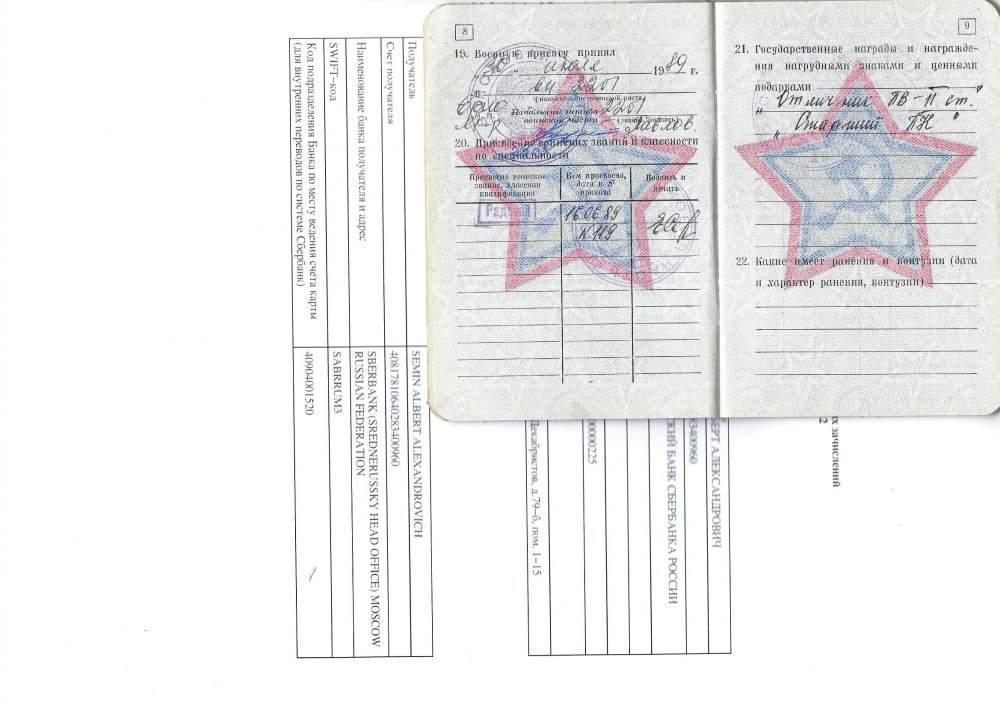 8
19. Военную присягу принял
30 июля 1989 г.
в в/ч 2201
(наименование воинской части)
Начальник штаба 2201
воинской части
Павлов.
20. Присвоение воинских званий и классности
по специальности
Присвоено воинское
звание, классная
квалификация
Кем присвоено,
дата и №
приказа
Подпись и
печать
Рядовой
16.06.89
N 119
9
21. Государственные награды и награжде-
ния нагрудными знаками и ценными
подарками
„Отличник ПВ-II ст."
„Старший ПН"
22. Какие имеет ранения и контузии (дата
и характер ранения, контузии)
Получатель
SEMIN ALBERT ALEXANDROVICH
Счет получателя
40817810640283400960
Наименование банка получателя и адрес
SBERBANK (SREDNERUSSKY HEAD OFFICE) MOSCOW
RUSSIAN FEDERATION
SWIFT-код
SABRRUM3
Код подразделения Банка по месту ведения счета карты
(для внутренних переводов по системе Сбербанк)
40904001520
х зачислений
2
БЕРТ АЛЕКСАНДРОВИЧ
83400960
СКИЙ БАНК СБЕРБАНКА РОССИИ
00000225
Декабристов, д.79-б, пом. 1-15